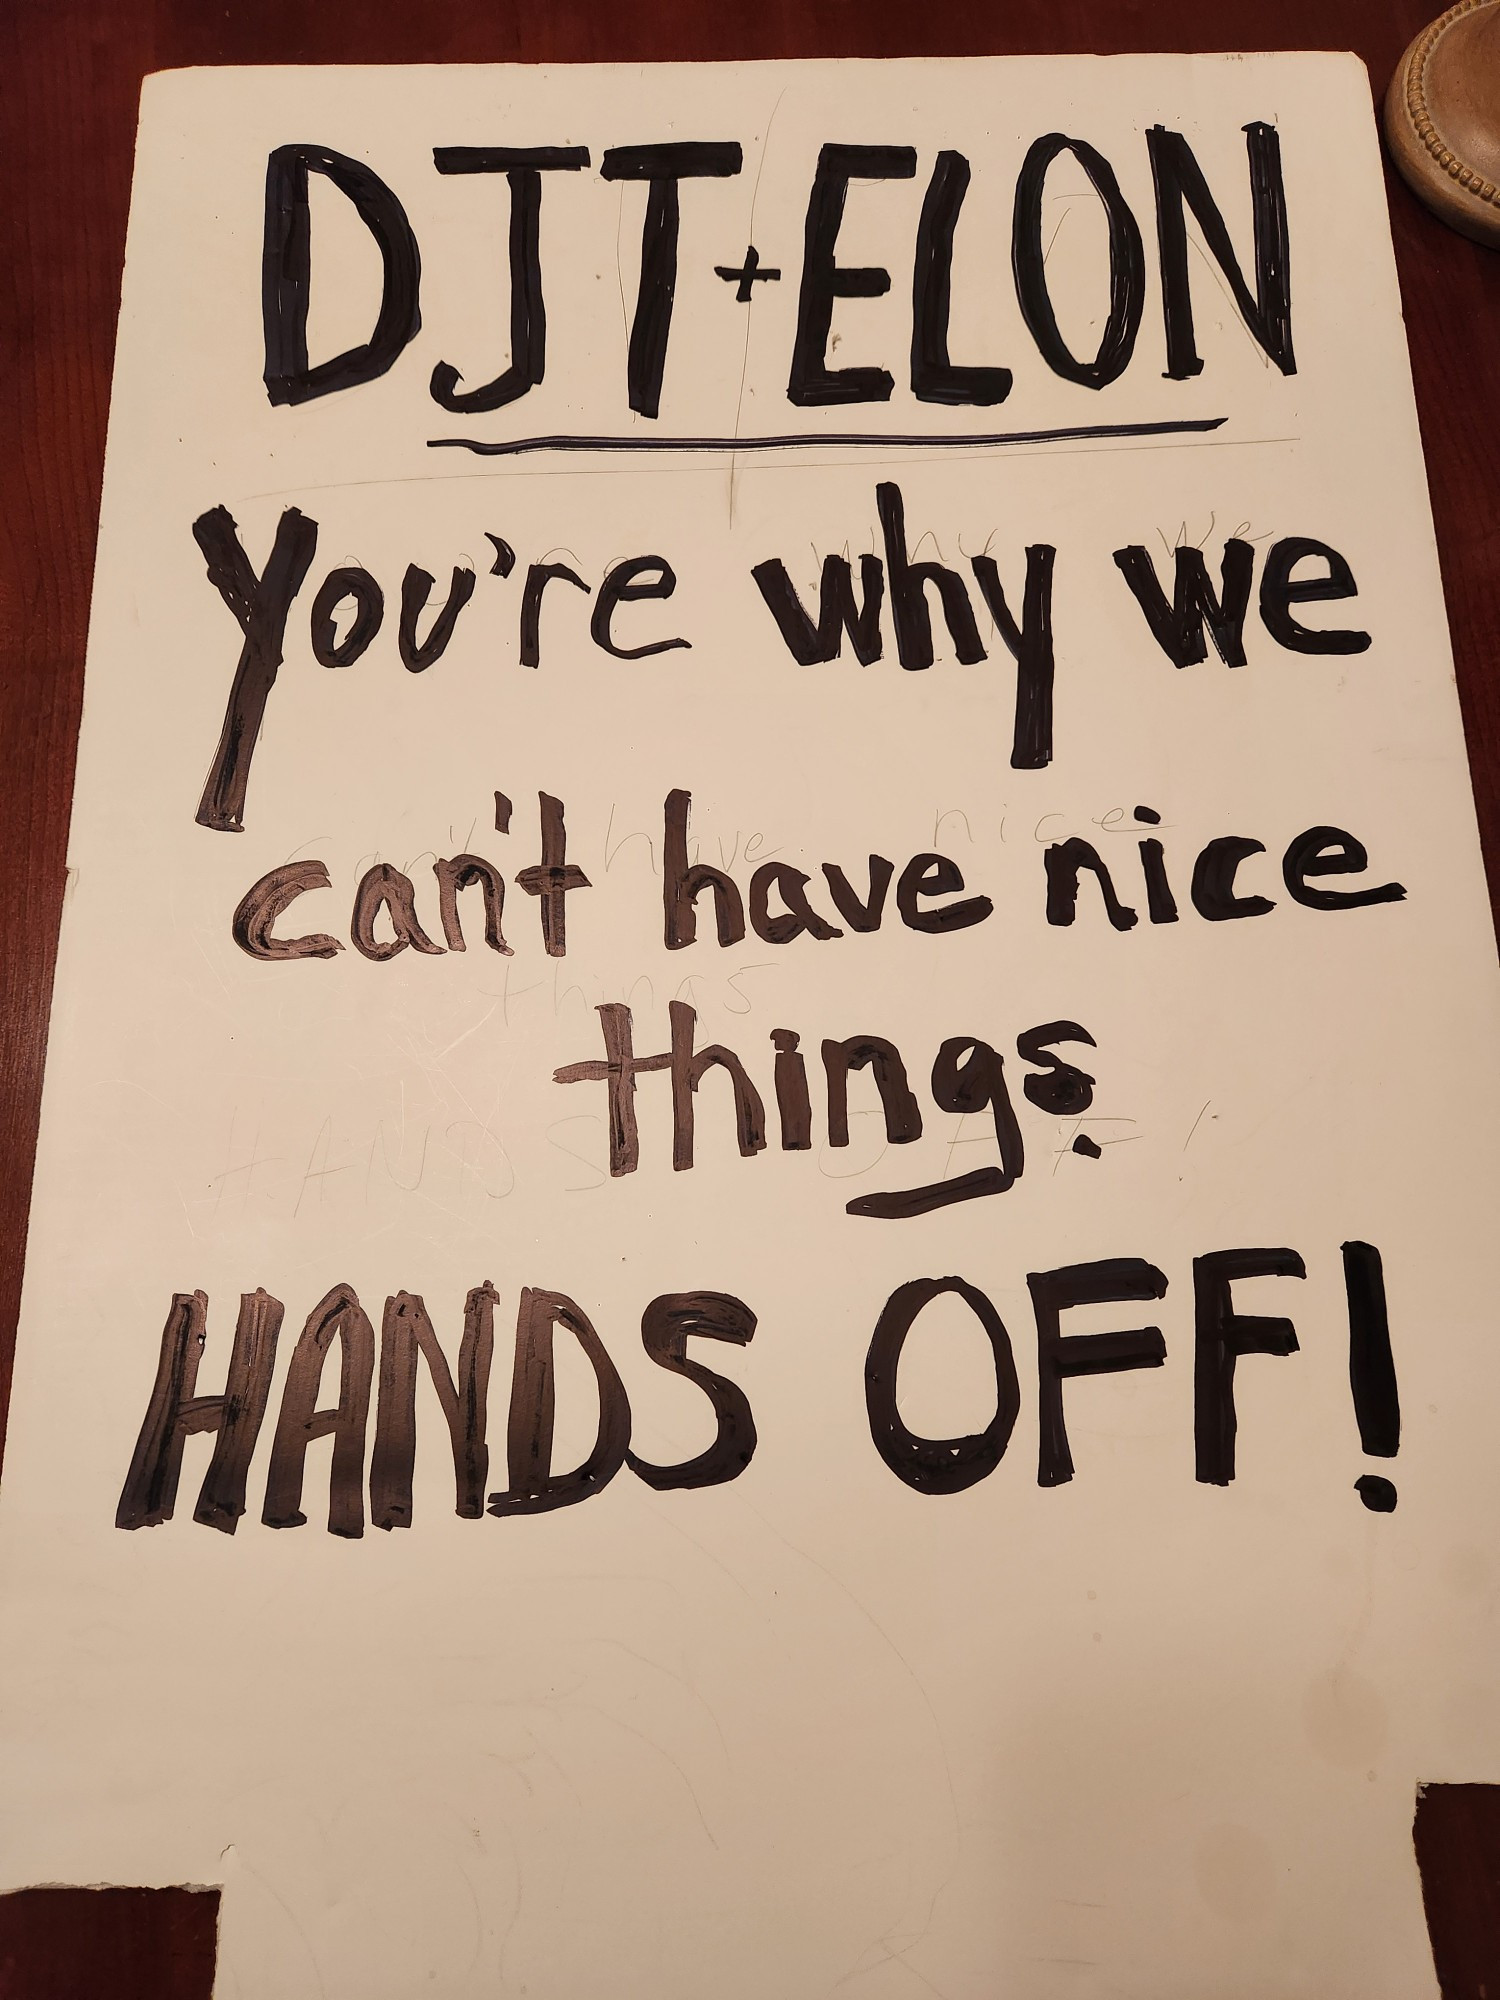 DJT + ELON
You're why we
can't have nice
things.
HANDS OFF!